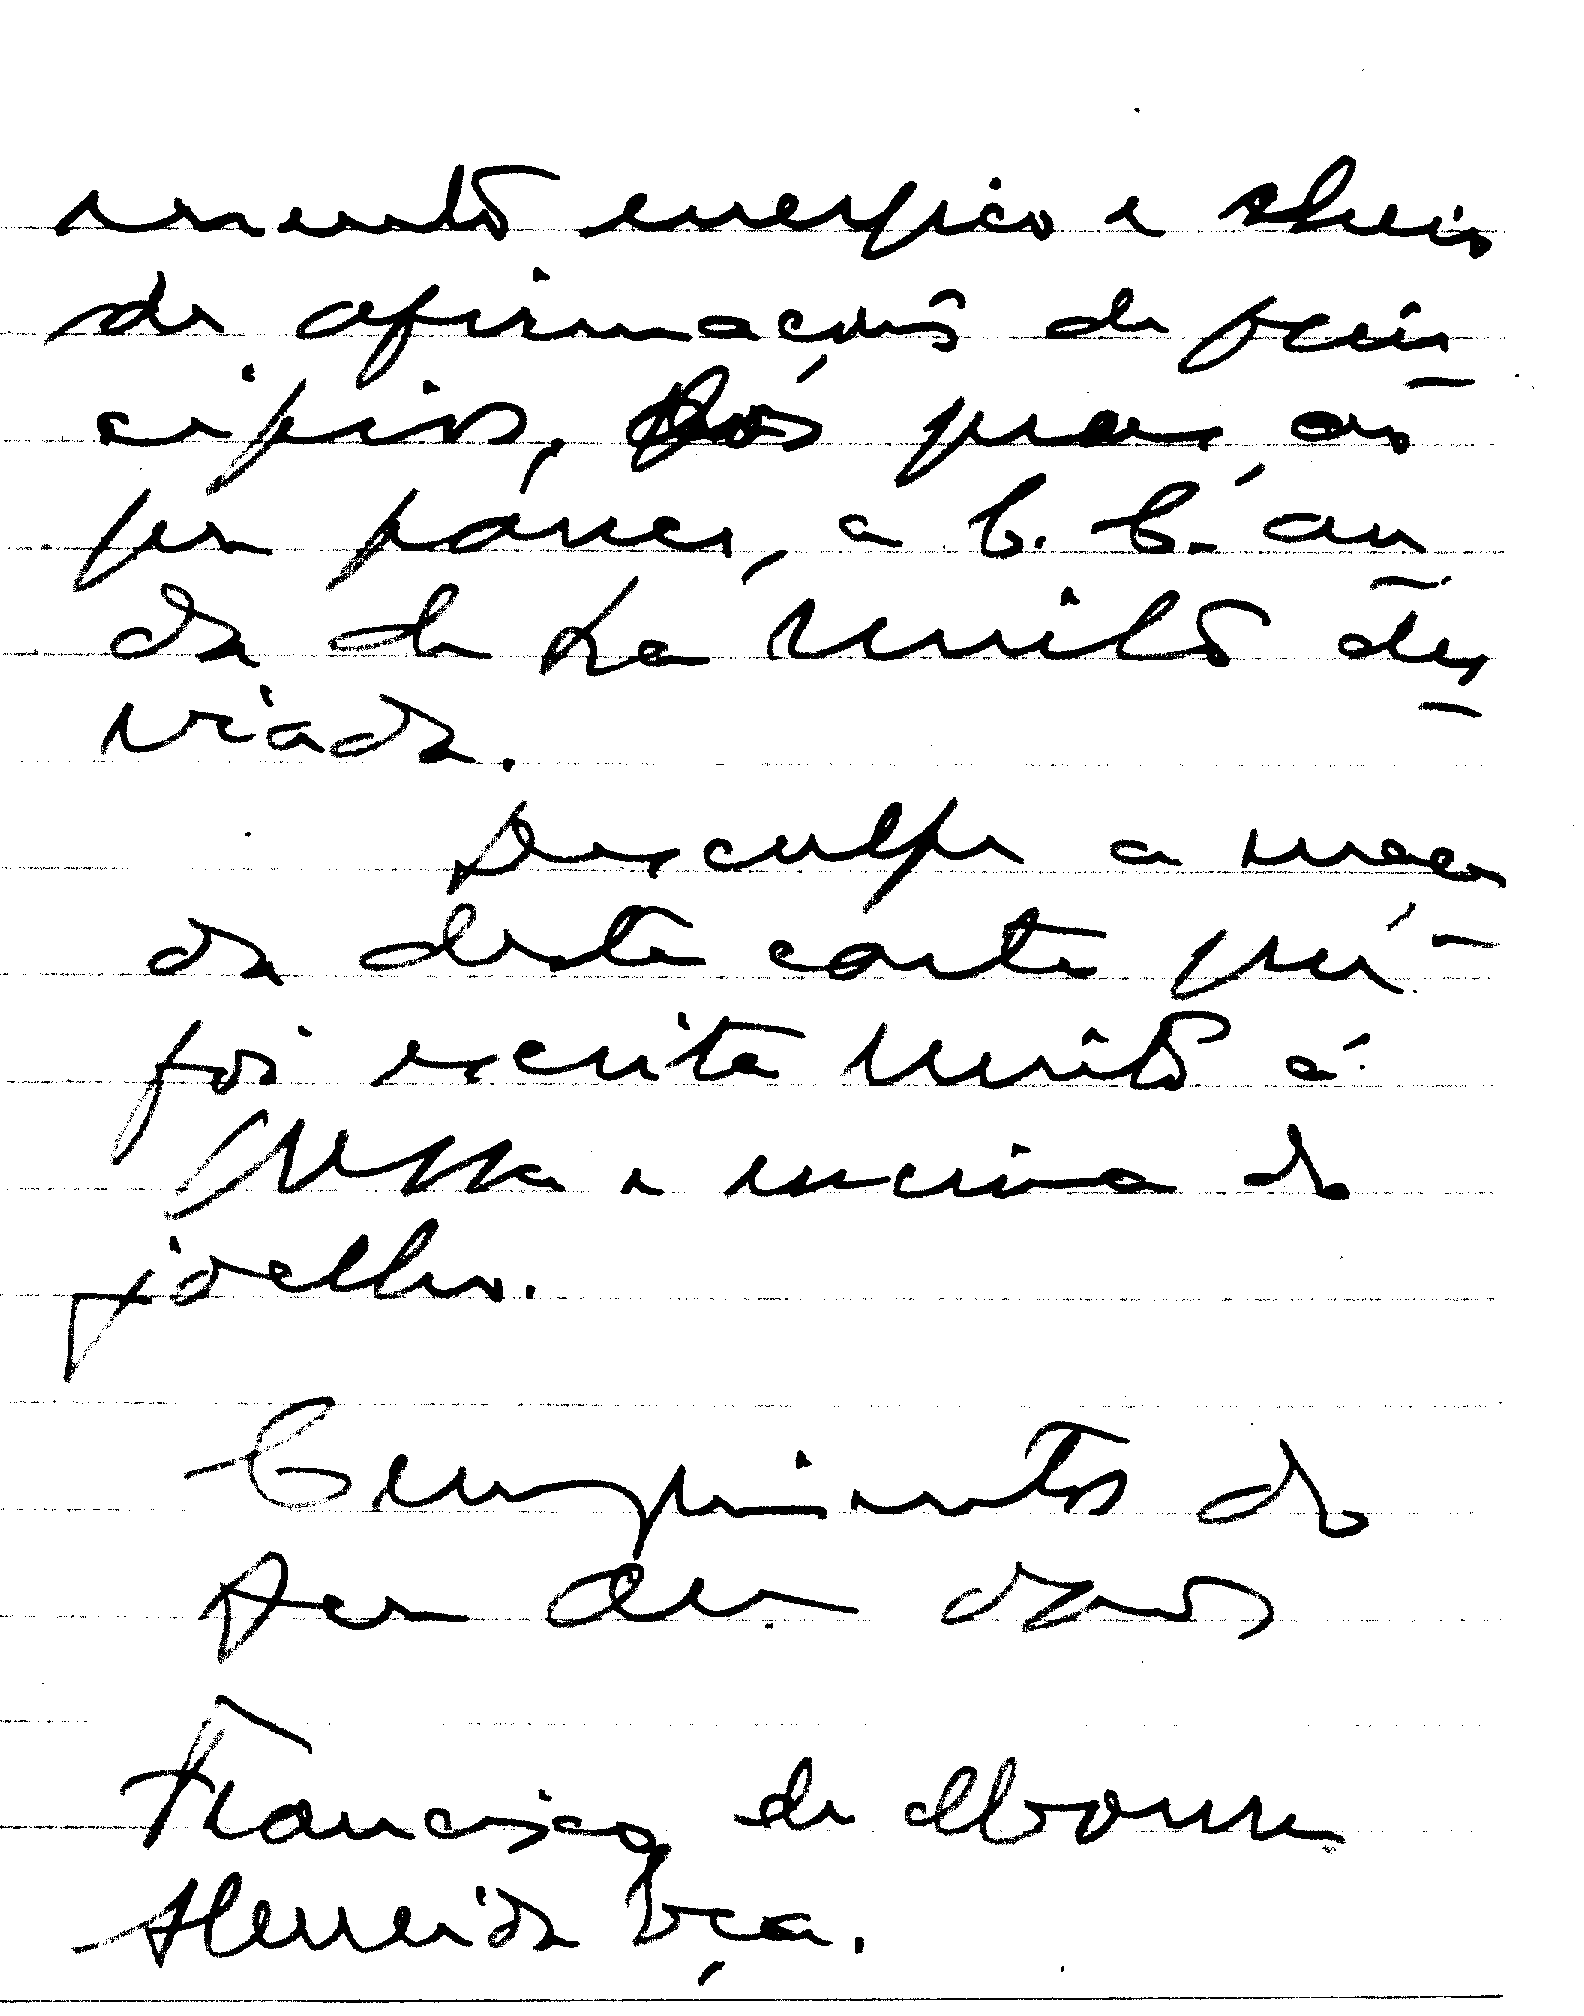 mento energico e cheio
de afirmações de prin
cipios, Pois por as
que parece, a C. C. an
da de ha muito des
viada.
Desculpe a maca
da desta carta que
foi escrita muito á
pressa e em cima do
joelho.
Cumprimentos do
Seu
Francisco de
Almeida